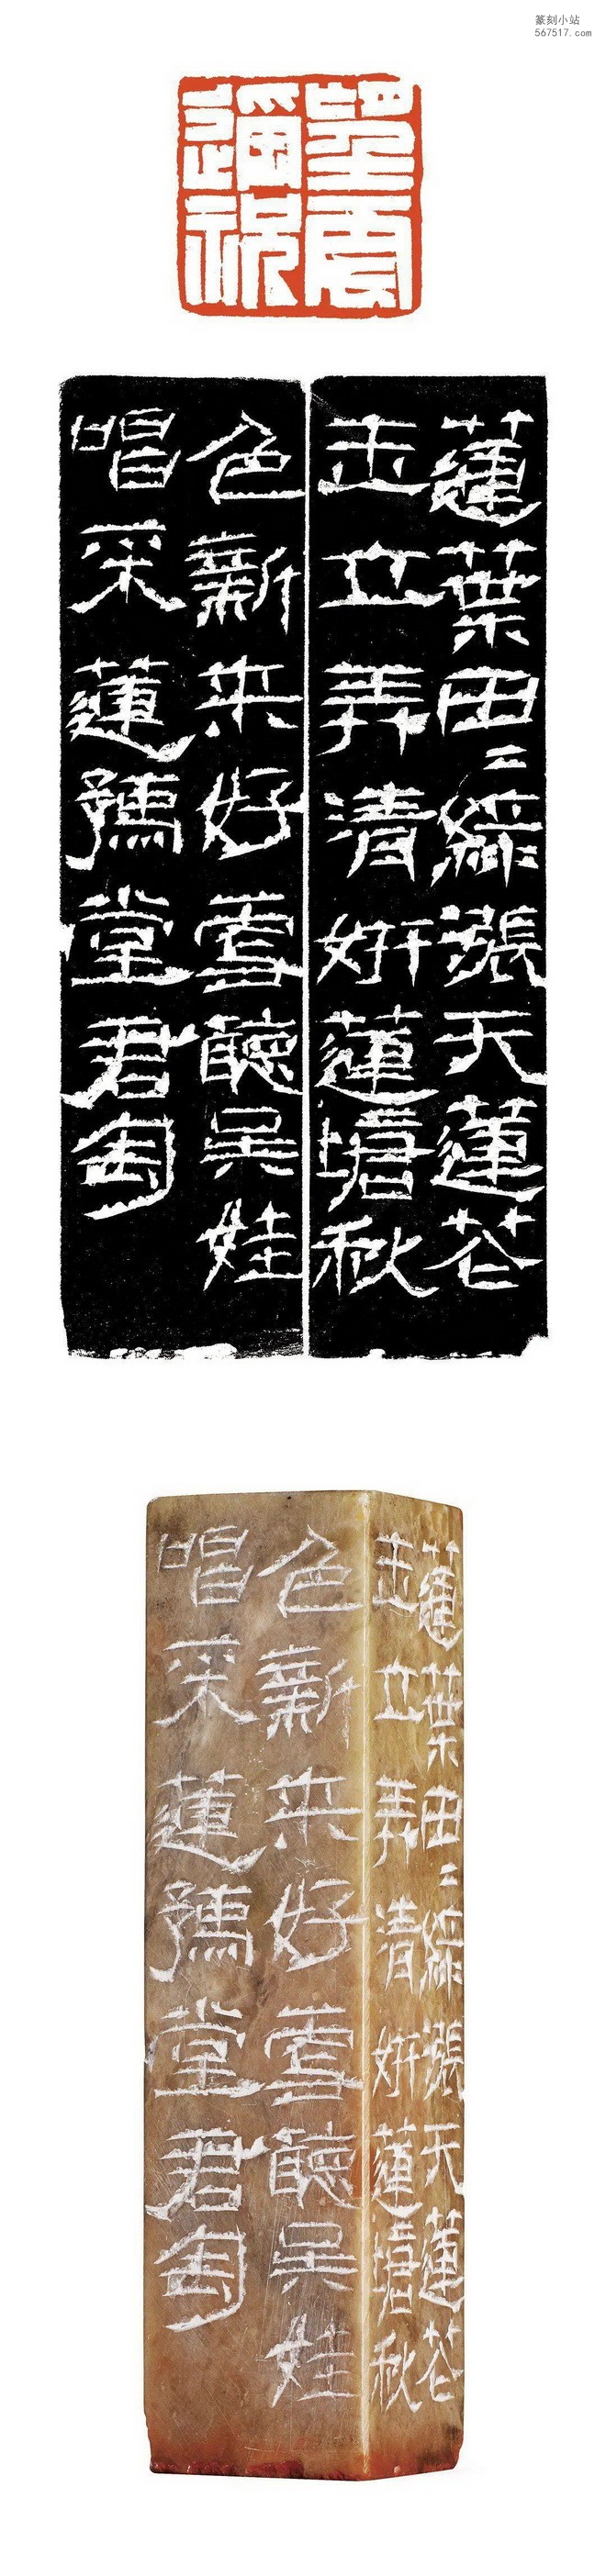 篆刻小站
567517.com
蓮葉田〻綠漲天蓮花
玉立弄清妍蓮塘秋
色新來好聽吳娃
唱采蓮豫堂君匋
蓮葉田〻綠漲天蓮花
玉立弄清妍蓮塘秋
色新來好聽吳娃
唱采蓮豫堂君匋